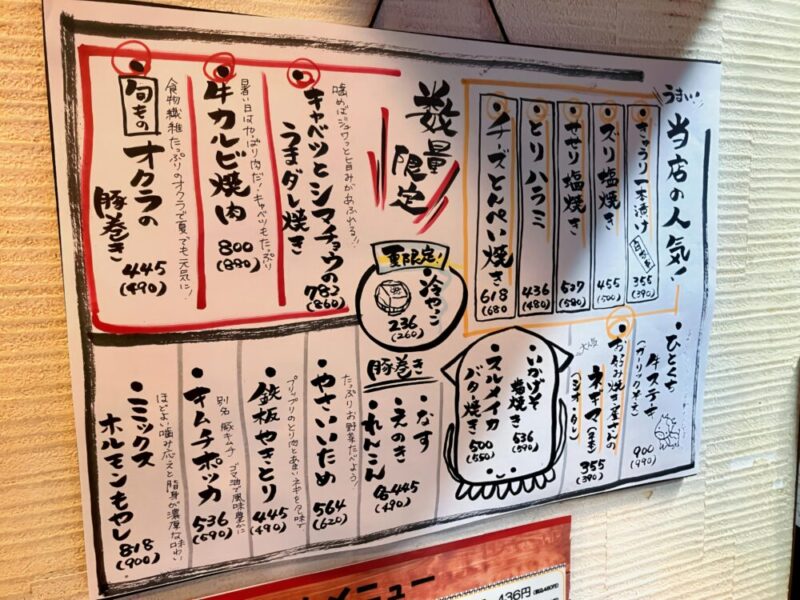 うまい!!
当店の人気!
きゅうり一本漬け
355
(390)
ズリ塩焼き
455
(500)
せせり塩焼き
527
(580)
とりハラミ
436
(480)
チーズとんぺい焼き
618
(680)
数量限定
キャベツとシマチョウの
うまダレ焼き
782
(860)
噛めばジュワッと旨みがあふれる!!
牛カルビ焼肉
800
(880)
暑い日はやっぱり肉だ!キャベツもたっぷり
旬もの
オクラの
豚巻き
445
(490)
食物繊維たっぷりのオクラで夏でも元気に!
夏限定!
冷やっこ
236
(260)
ひとくち
牛ステーキ
(ガーリックのき)
900
(990)
お好み焼き屋さんの
ネギマ(2本)
(シオ・タレ)
355
(390)
いかげそ
塩焼き
536
(590)
スルメイカ
バター焼き
500
(550)
豚巻き
なす
えのき
れんこん
各445
(490)
たっぷりお野菜たべよう!
やさいいため
564
(620)
鉄板やきとり
445
(490)
プリップリのとり肉とあまいネギを
キムチポッカ
536
(590)
別名 豚キムチ ゴマ油で風味豊かに
ミックス
ホルモンもやし
818
(900)
ほどよい噛み応えと脂身が濃厚な味わい
メニュー
436円